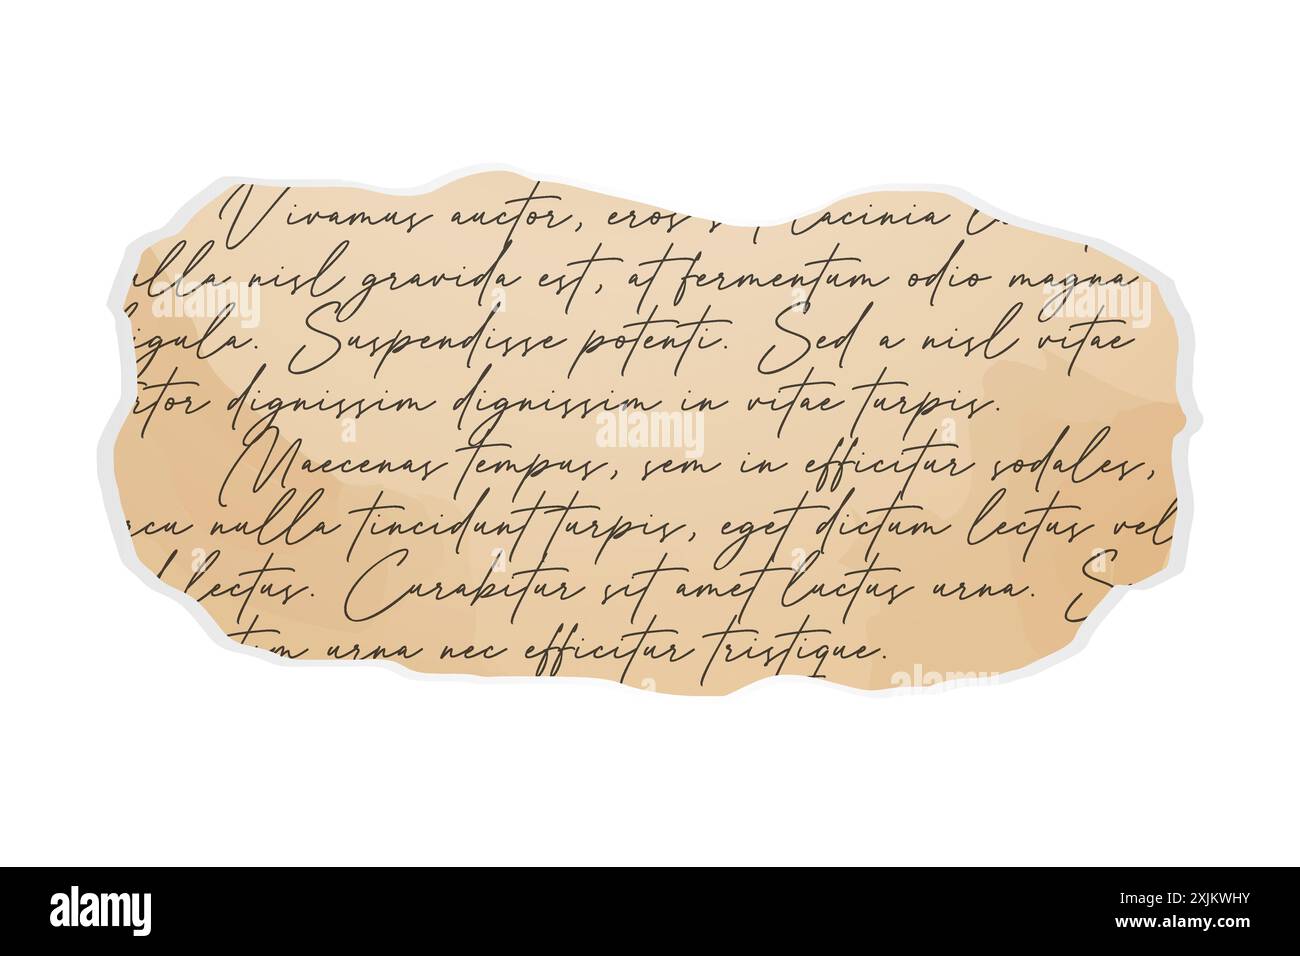 Vivamus auctor, eros lacinia
nisl gravida est, at fermentum odio magna
Suspendisse potenti. Sed a nisl vitae
dignissim dignissim in vitae turpis.
Maecenas tempus, sem in efficitur sodales,
nulla tincidunt turpis, eget dictum lectus vel
lectus. Curabitur sit amet luctus urna. S
urna nec efficitur tristique.
alamy
Image ID: 2XJKWHY
www.alamy.com